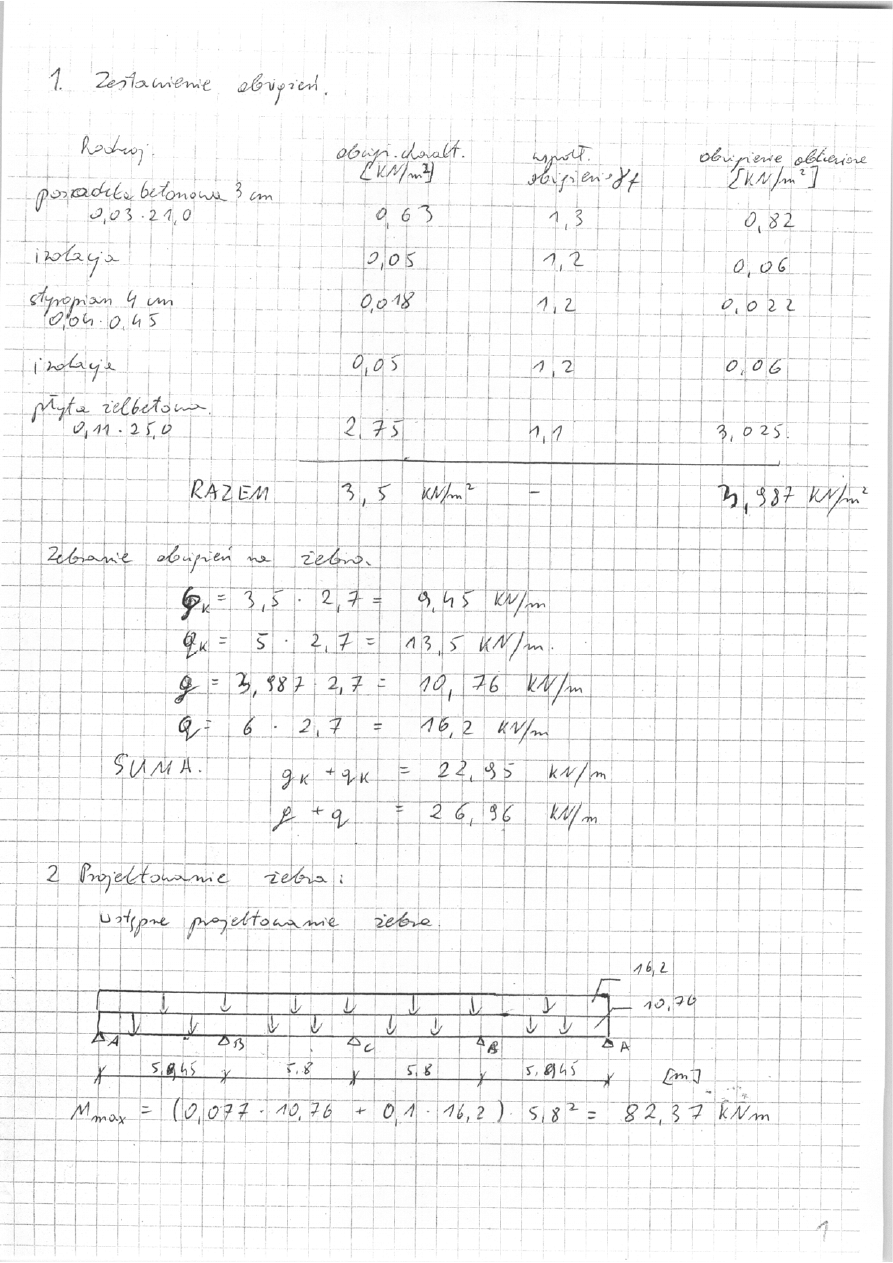 1. Zestawienie obciążeń.
Rodzaj obciąż. charakt. współ. obciążenie obliczeniowe
[KN/m²] obciążenia γf [KN/m²]
posadzka betonowa 3 cm
0,03·21,0 0,63 1,3 0,82
izolacja 0,05 1,2 0,06
styropian 4 cm 0,018 1,2 0,022
0,04·0,45
izolacja 0,05 1,2 0,06
płyta żelbetowa
0,11·25,0 2,75 1,1 3,025
RAZEM 3,5 KN/m² - 3,987 KN/m²
Zebranie obciążeń na żebro.
gK = 3,5 · 2,7 = 9,45 KN/m
qK = 5 · 2,7 = 13,5 KN/m.
g = 3,987·2,7 = 10,76 KN/m
q = 6 · 2,7 = 16,2 KN/m
SUMA. gK + qK = 22,95 KN/m
g + q = 26,96 KN/m
2 Projektowanie żebra:
wstępne projektowanie żebra.
16,2
10,76
A B C B A
5,845 5,8 5,8 5,845 [m]
Mmax = (0,077·10,76 + 0,1·16,2)·5,8² = 82,37 KNm
1